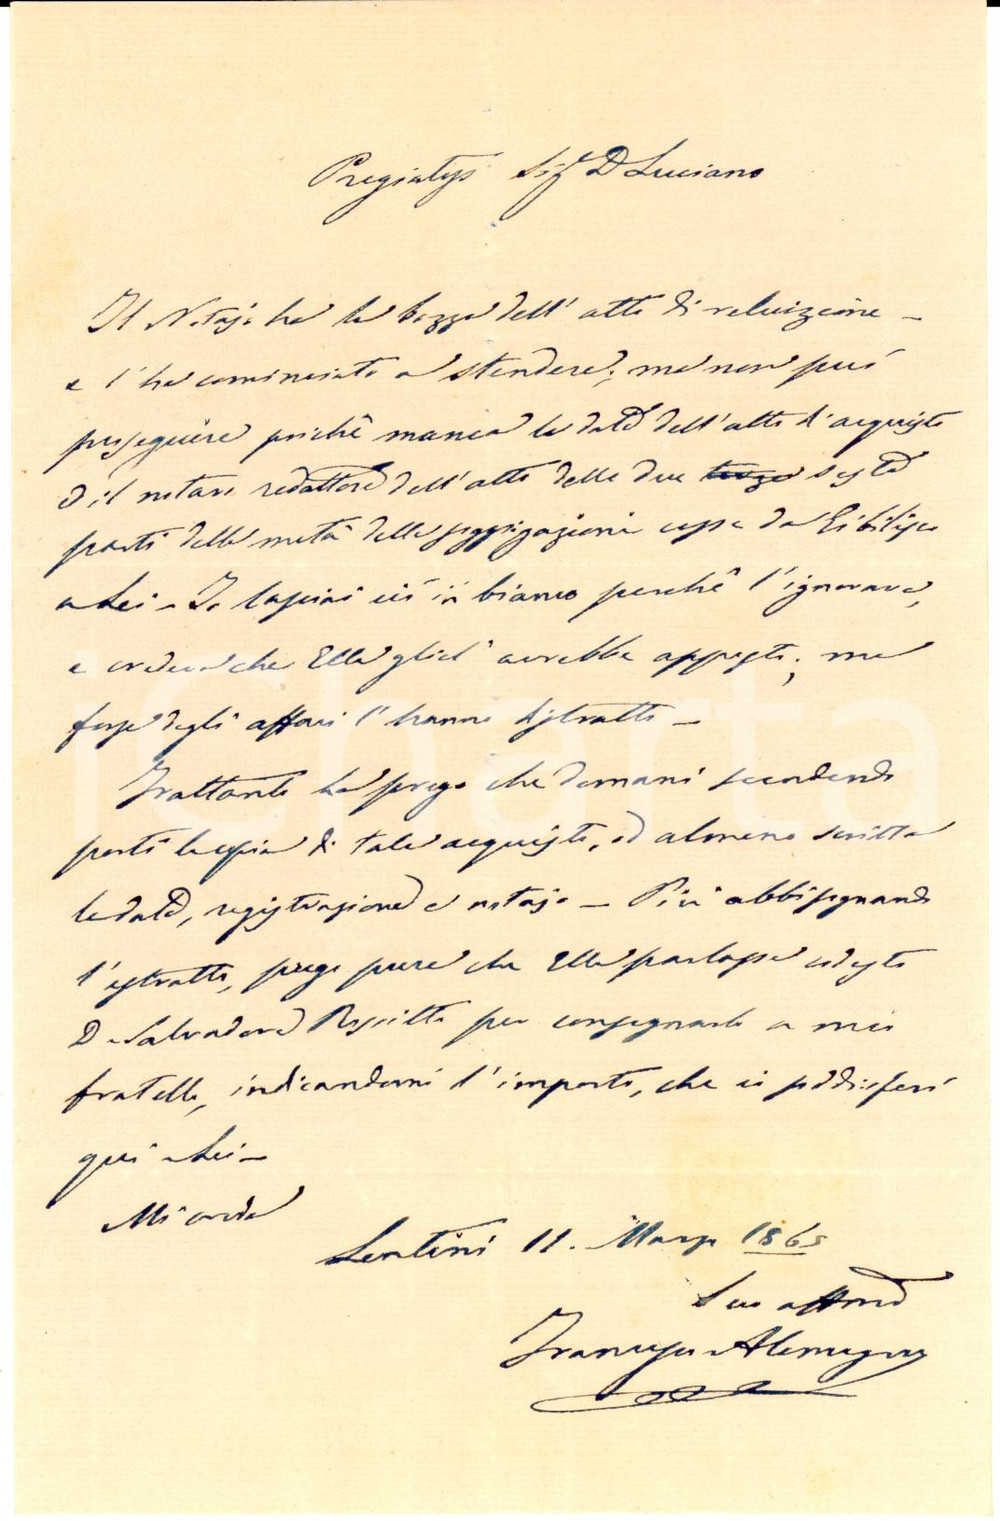 Pregiatmo Sigr D Luciano
Il Notajo ha la bozza dell' atto di reluizione –
e l' ha cominciato a stendere; ma non può
proseguire poichè manca la data dell' atto d' acquisto
ed il notaro redattore dell' atto delle due terze seste
parti della metà della soggiogazione cessa da
a Lei – Io lasciai ciò in bianco perchè l' ignorava,
e credea che Ella gliel' avrebbe apposto; ma
forse degli affari l' hanno distratto –
Frattanto La prego che domani scendendo
porti la copia di tale acquisto, od almeno scritta
la data, registrazione e notajo – Più abbisognando
l' estratto, prego pure che Ella parlasse costì
D Salvadore per consegnarlo a mio
fratello, indicandomi l' importo, che io soddisferò
qui a Lei –
Mi creda
Lentini 11. Marzo 1865
Suo affmo
Francesco